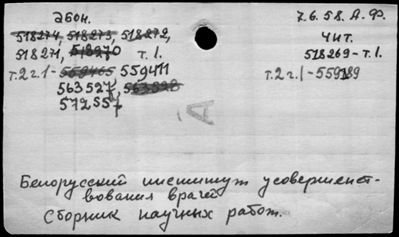 абон.
7.6.58. А.Ф.
518274, 518273, 518272,
чит.
518271, 518270 т. 1.
518269 - т. 1.
т. 2 г. 1 - 559465 559411
т. 2 г. 1 - 559189
563527, 563528
572557
А
Белорусский институт усовершенст-
вования врачей
Сборник научных работ.